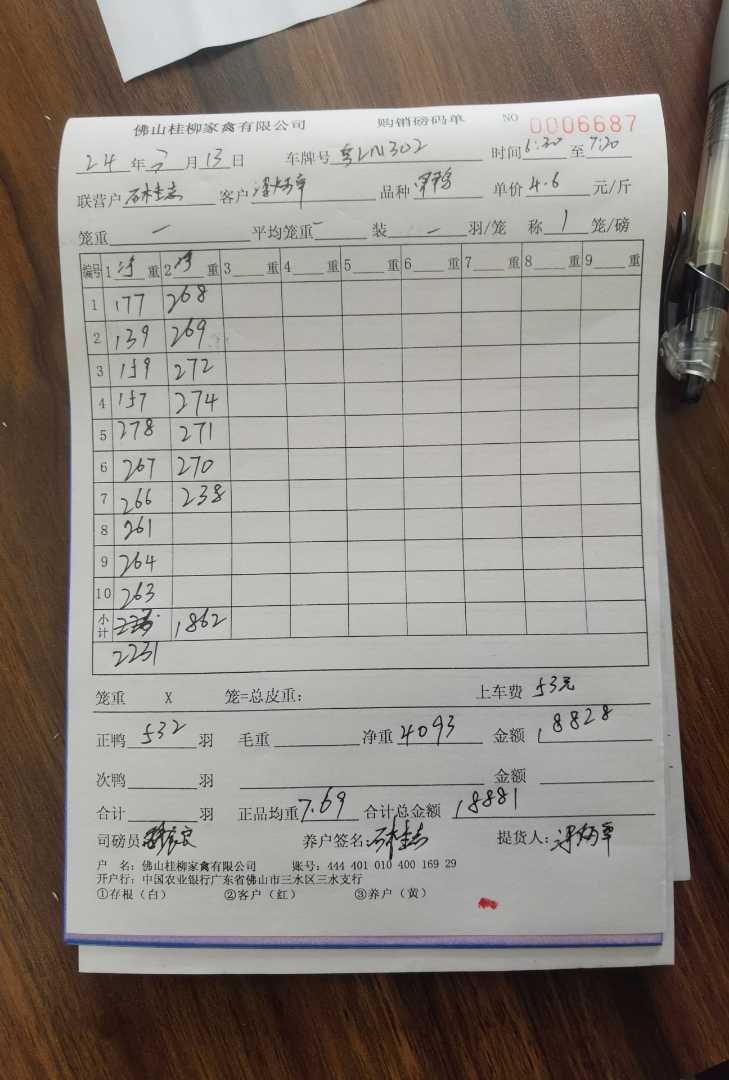 佛山桂柳家禽有限公司 购销磅码单 NO 0006687
24年 月13日 车牌号 粤LN1302 时间6:20至7:20
联营户 石桂志 客户 品种 单价4.6元/斤
笼重 — 平均笼重 — 装 — 羽/笼 称 1 笼/磅
编号 1净重 2净重 3 重 4 重 5 重 6 重 7 重 8 重 9 重
1 177 268
2 139 269
3 159 272
4 157 274
5 278 271
6 267 270
7 266 238
8 261
9 264
10 263
小计 1862
2231
笼重 X 笼=总皮重: 上车费 53元
正鸭 532 羽 毛重 净重 4093 金额 18828
次鸭 羽 金额
合计 羽 正品均重 7.69 合计总金额 18881
司磅员 养户签名:石桂志 提货人:
户 名: 佛山桂柳家禽有限公司 账号: 444 401 010 400 169 29
开户行: 中国农业银行广东省佛山市三水区三水支行
①存根（白） ②客户（红） ③养户（黄）